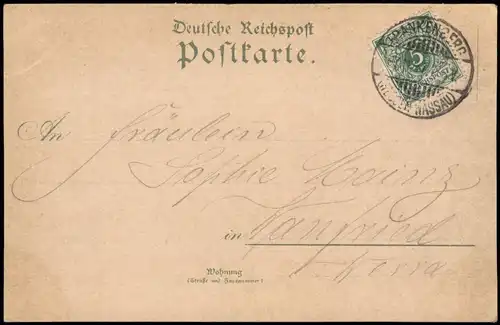 Deutsche Reichspost
Postkarte.
FRANKENBERG
NASSAU)
An Fräulein
Sophie Mainz
in Wanfried
Werra
Wohnung
(Straße und Hausnummer)